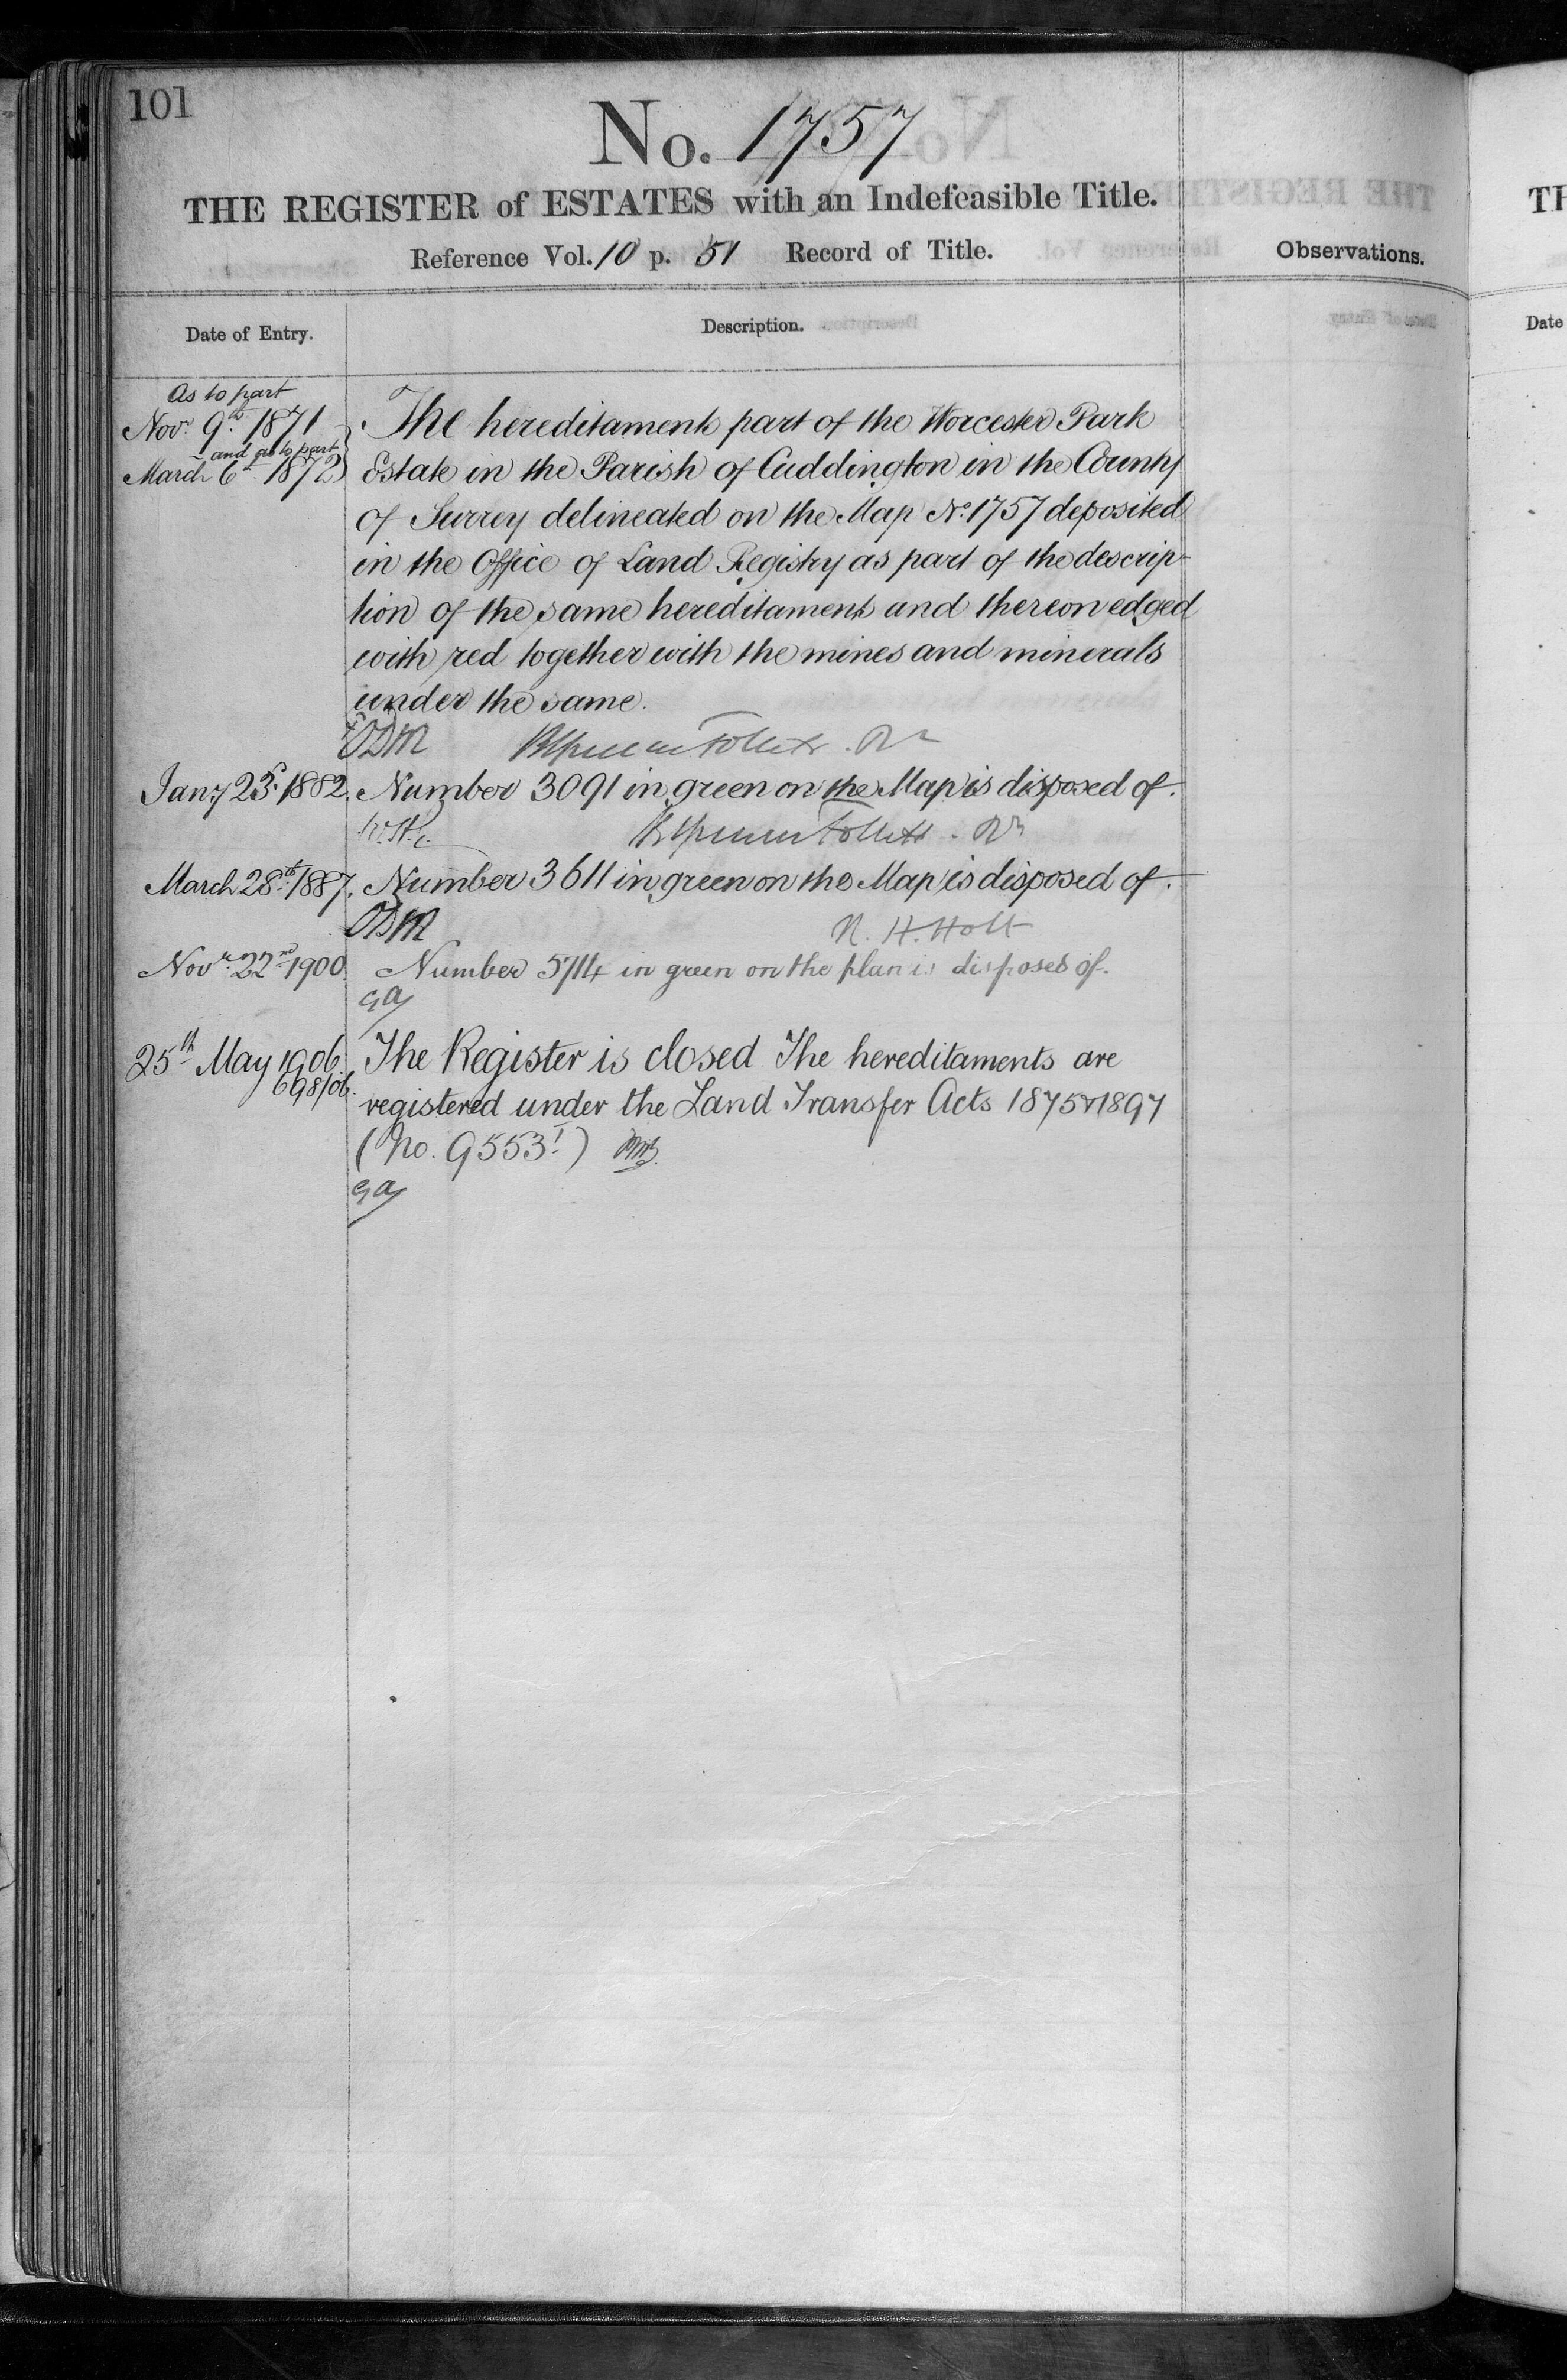 101
No. 1757
THE REGISTER of ESTATES with an Indefeasible Title.
Reference Vol. 10 p. 51 Record of Title.
Observations.
Date of Entry.
Description.
As to part
Nov.r 9th 1871
and as to part
March 6th 1872
The hereditaments part of the Worcester Park
Estate in the Parish of Cuddington in the County
of Surrey delineated on the Map No. 1757 deposited
in the Office of Land Registry as part of the descrip-
tion of the same hereditaments and thereon edged
with red together with the mines and minerals
under the same.
ODM
Jany 23rd 1882. Number 3091 in green on the Map is disposed of.
March 28th 1887. Number 3611 in green on the Map is disposed of.
ODM
N. H. Holt
Novr. 22nd 1900. Number 5714 in green on the plan is disposed of.
25th May 1906. The Register is closed The hereditaments are
698/06.
registered under the Land Transfer Acts 1875 & 1897
(No. 9553.)
TH
Date